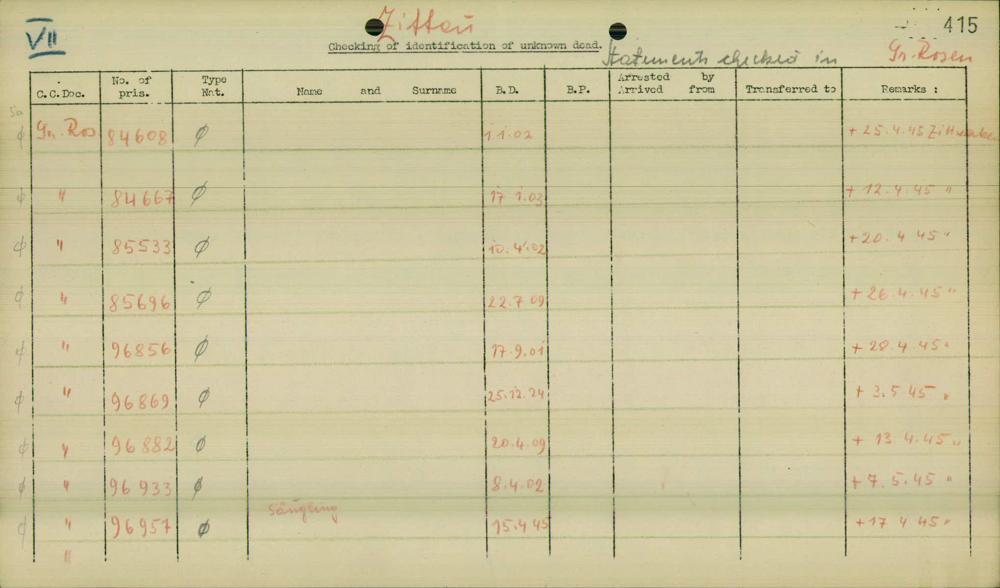 VII Zittau 415
Checking of identification of unknown dead. Statements checked in Gr. Rosen
C.C.Doc. No. of pris. Type Nat. Name and Surname B.D. B.P. Arrested by Arrived from Transferred to Remarks :
Gr. Ros 84608 ϕ 1.1.02 + 25.4.45
ϕ " 84667 ϕ 17 1.03 + 12.4 45 "
ϕ " 85533 ϕ 10.4.02 + 20.4 45 "
ϕ " 85696 ϕ 22.7 09 + 26.4.45 "
ϕ " 96856 ϕ 17.9.01 + 28.4 45 "
ϕ " 96869 ϕ 25.12.24 + 3.5 45 "
ϕ " 96882 ϕ 20.4.09 + 13 4.45 "
ϕ " 96933 ϕ 8.4.02 + 7.5.45 "
ϕ " 96957 ϕ Säugling 15.4 45 + 17 4 45 "
"